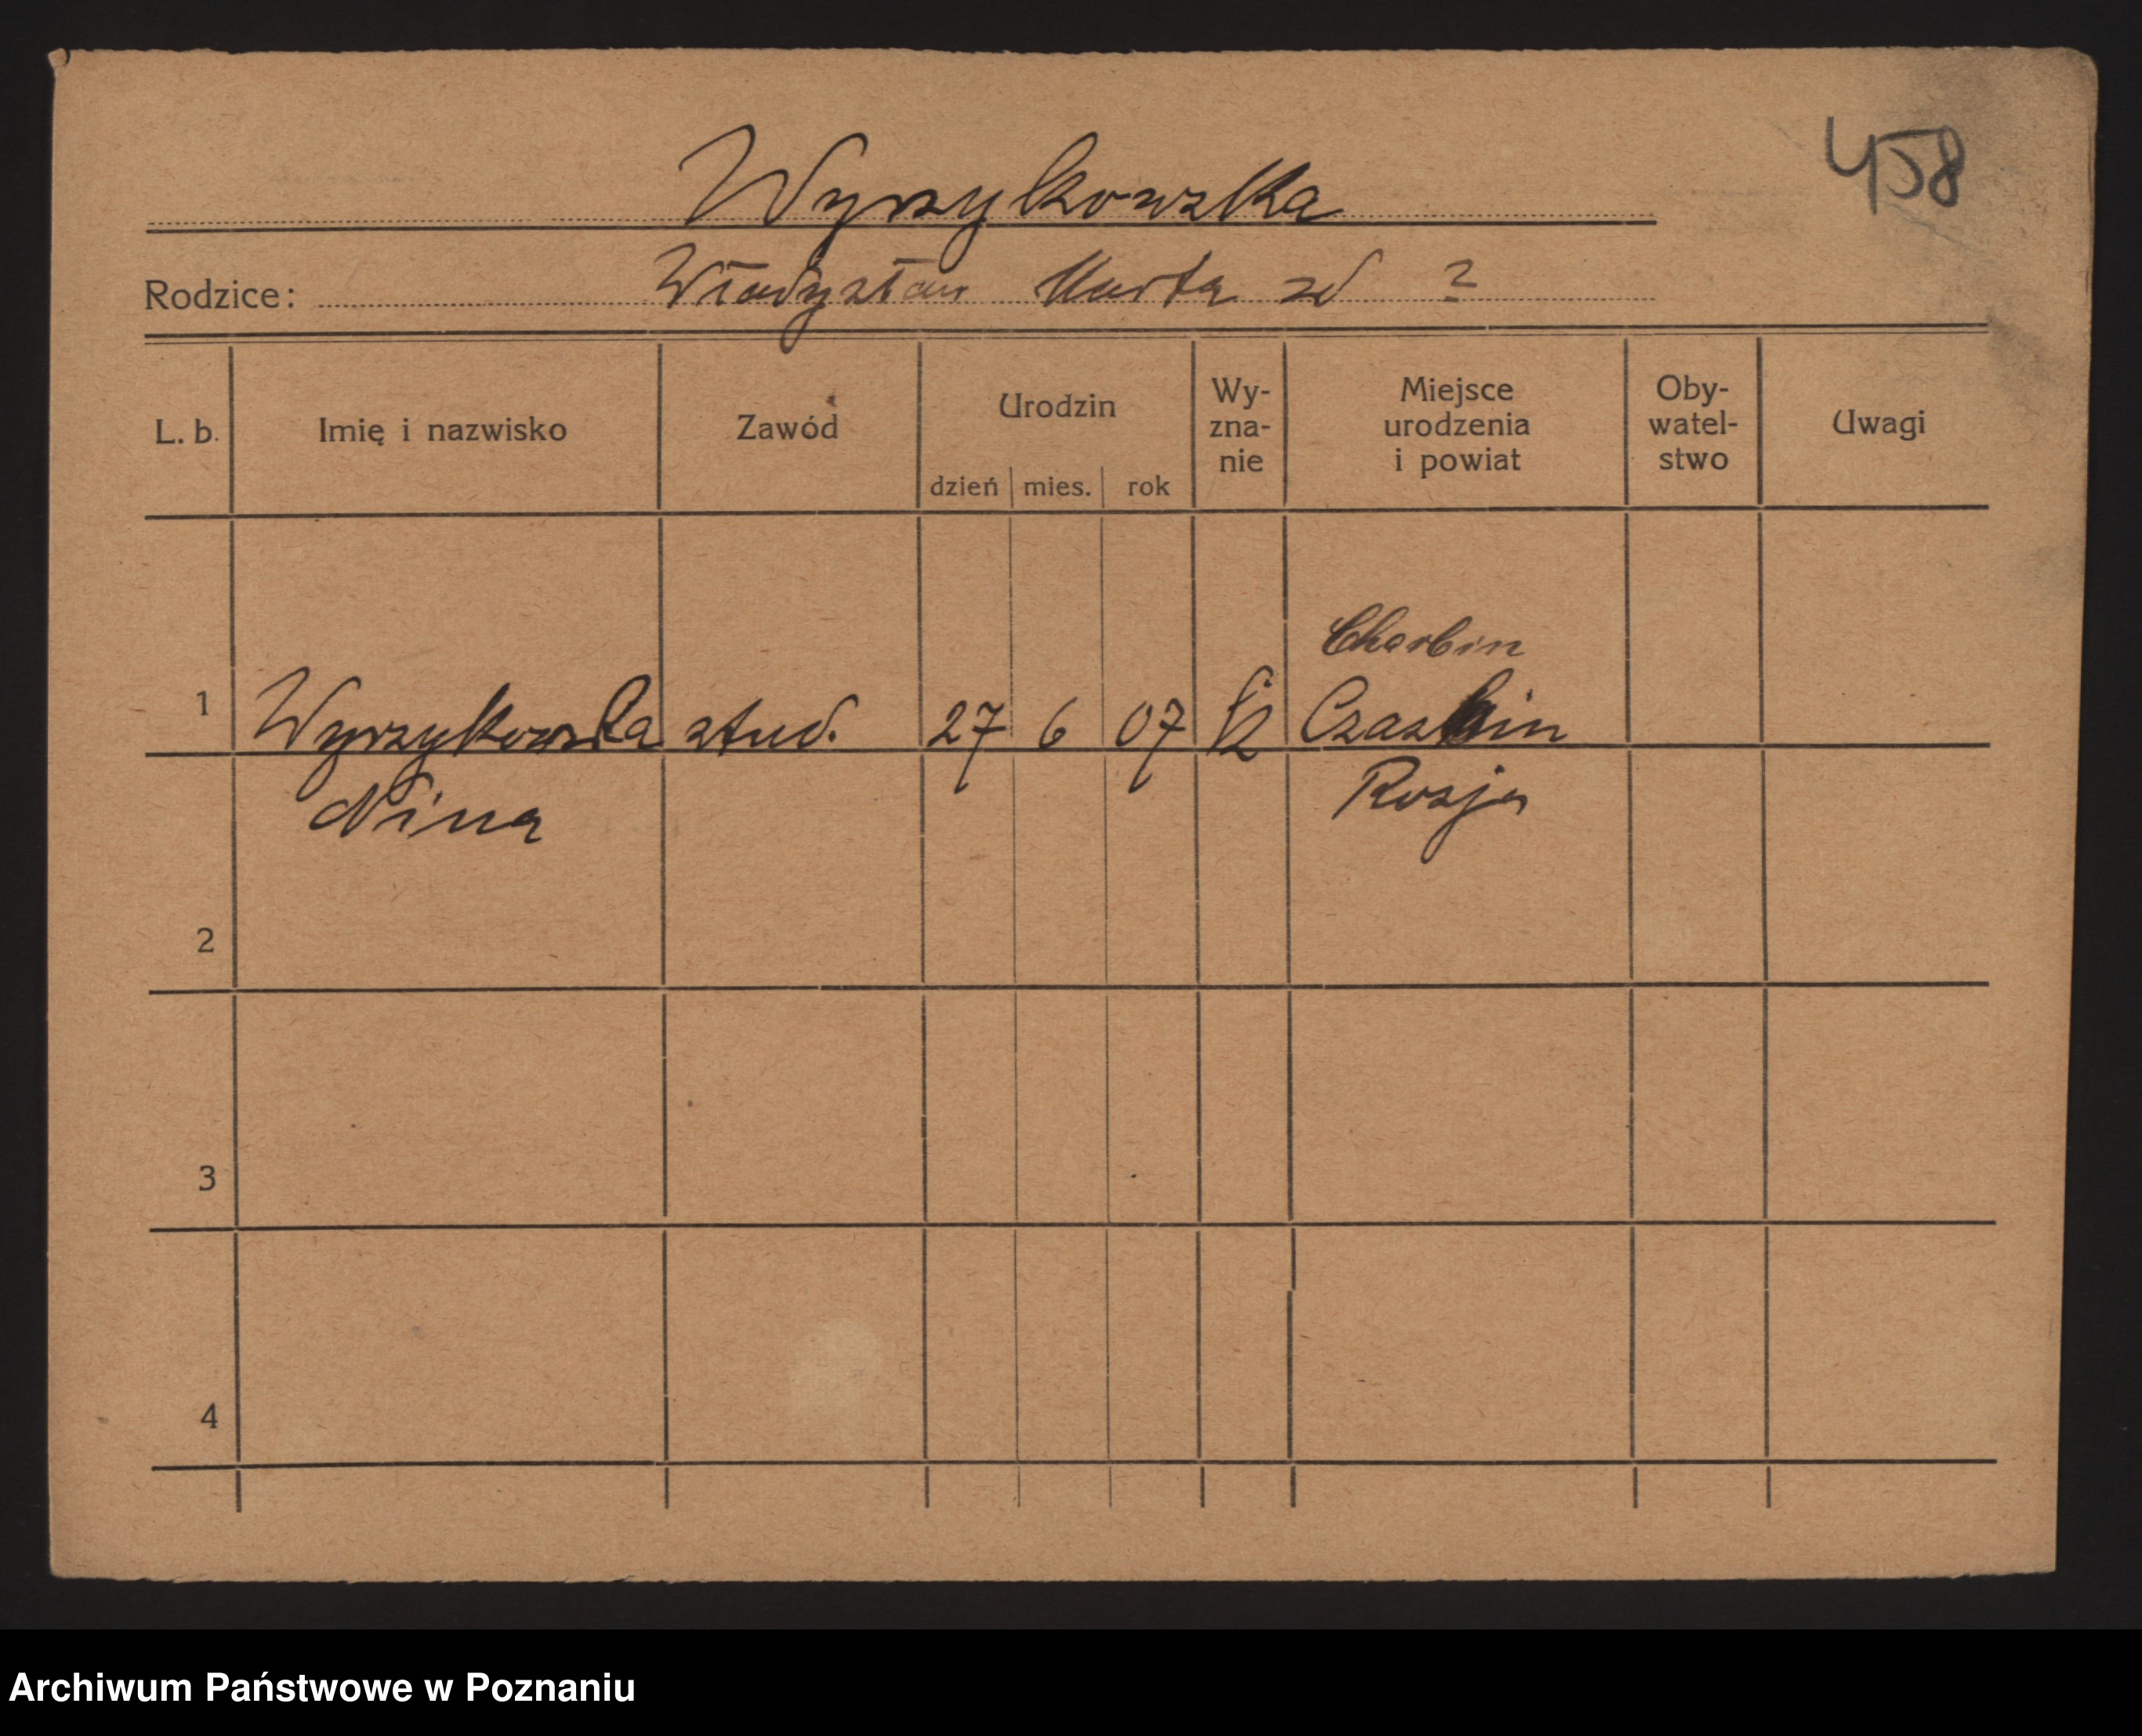 458
Wyrzykowska
Rodzice: Władysław Marta zd ?
L. b. Imię i nazwisko Zawód Urodzin dzień mies. rok Wy-zna-nie Miejsce urodzenia i powiat Oby-watel-stwo Uwagi
Charbin
1 Wyrzykowska stud. 27 6 07
Nina Rosja
2
3
4
Archiwum Państwowe w Poznaniu